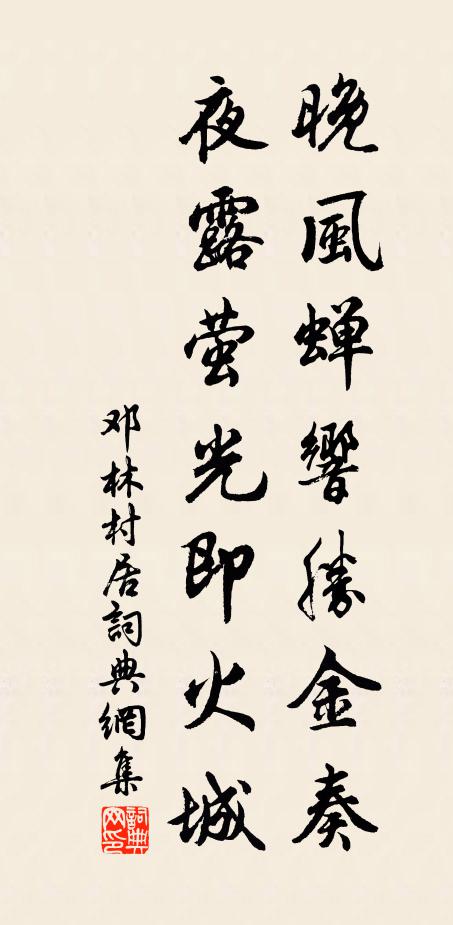 晚風蝉響勝金奏
夜露萤光即火城
邓林村居詞典網集
詞典网印